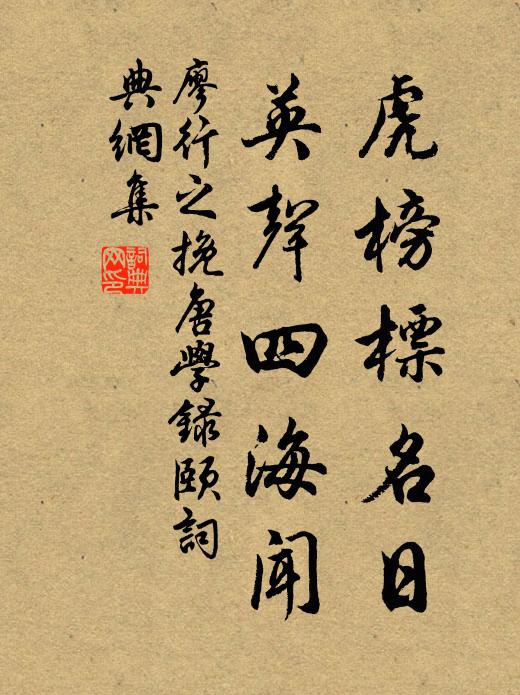 虎榜標名日
英聲四海聞
廖行之挽唐學錄頤詞
典網集
詞典
网印